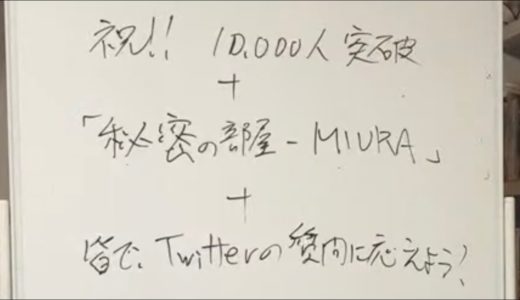 祝!! 10,000人突破
+
「秘密の部屋-MIURA」
+
皆で、Twitterの質問に応えよう!